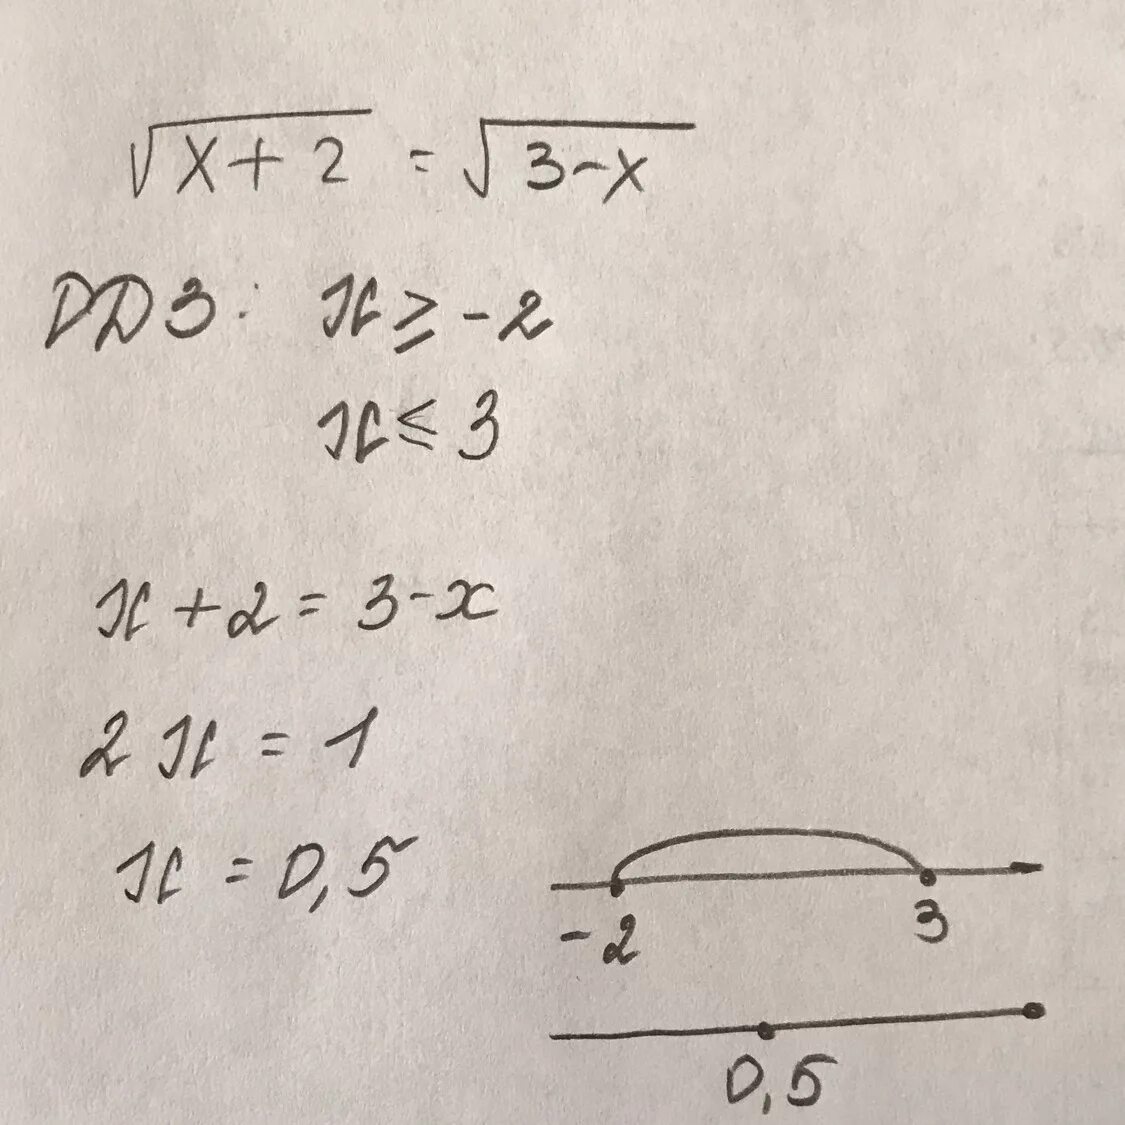 √(x+2) = √(3-x)
ОДЗ: x ≥ -2
x ≤ 3
x+2 = 3-x
2x = 1
x = 0,5
-2 3
0,5